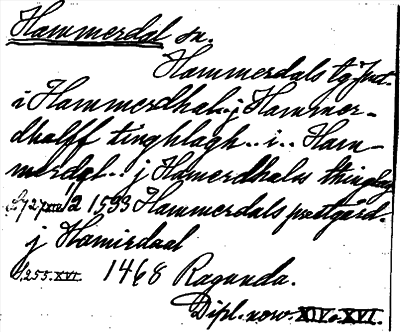 Hammerdal sn.
Hammerdals tg Jmt.
i Hammerdhal.. j Hammer-
dhalff tinghlagh.. i.. Ham-
merdal.. j Hamerdhals thinglag
S. 727 XIII/2 1533 Hammerdals prestgård.
j Hamirdaal
S. 255. XVI. 1468 Ragunda.
Dipl. norv. XIV o. XVI.